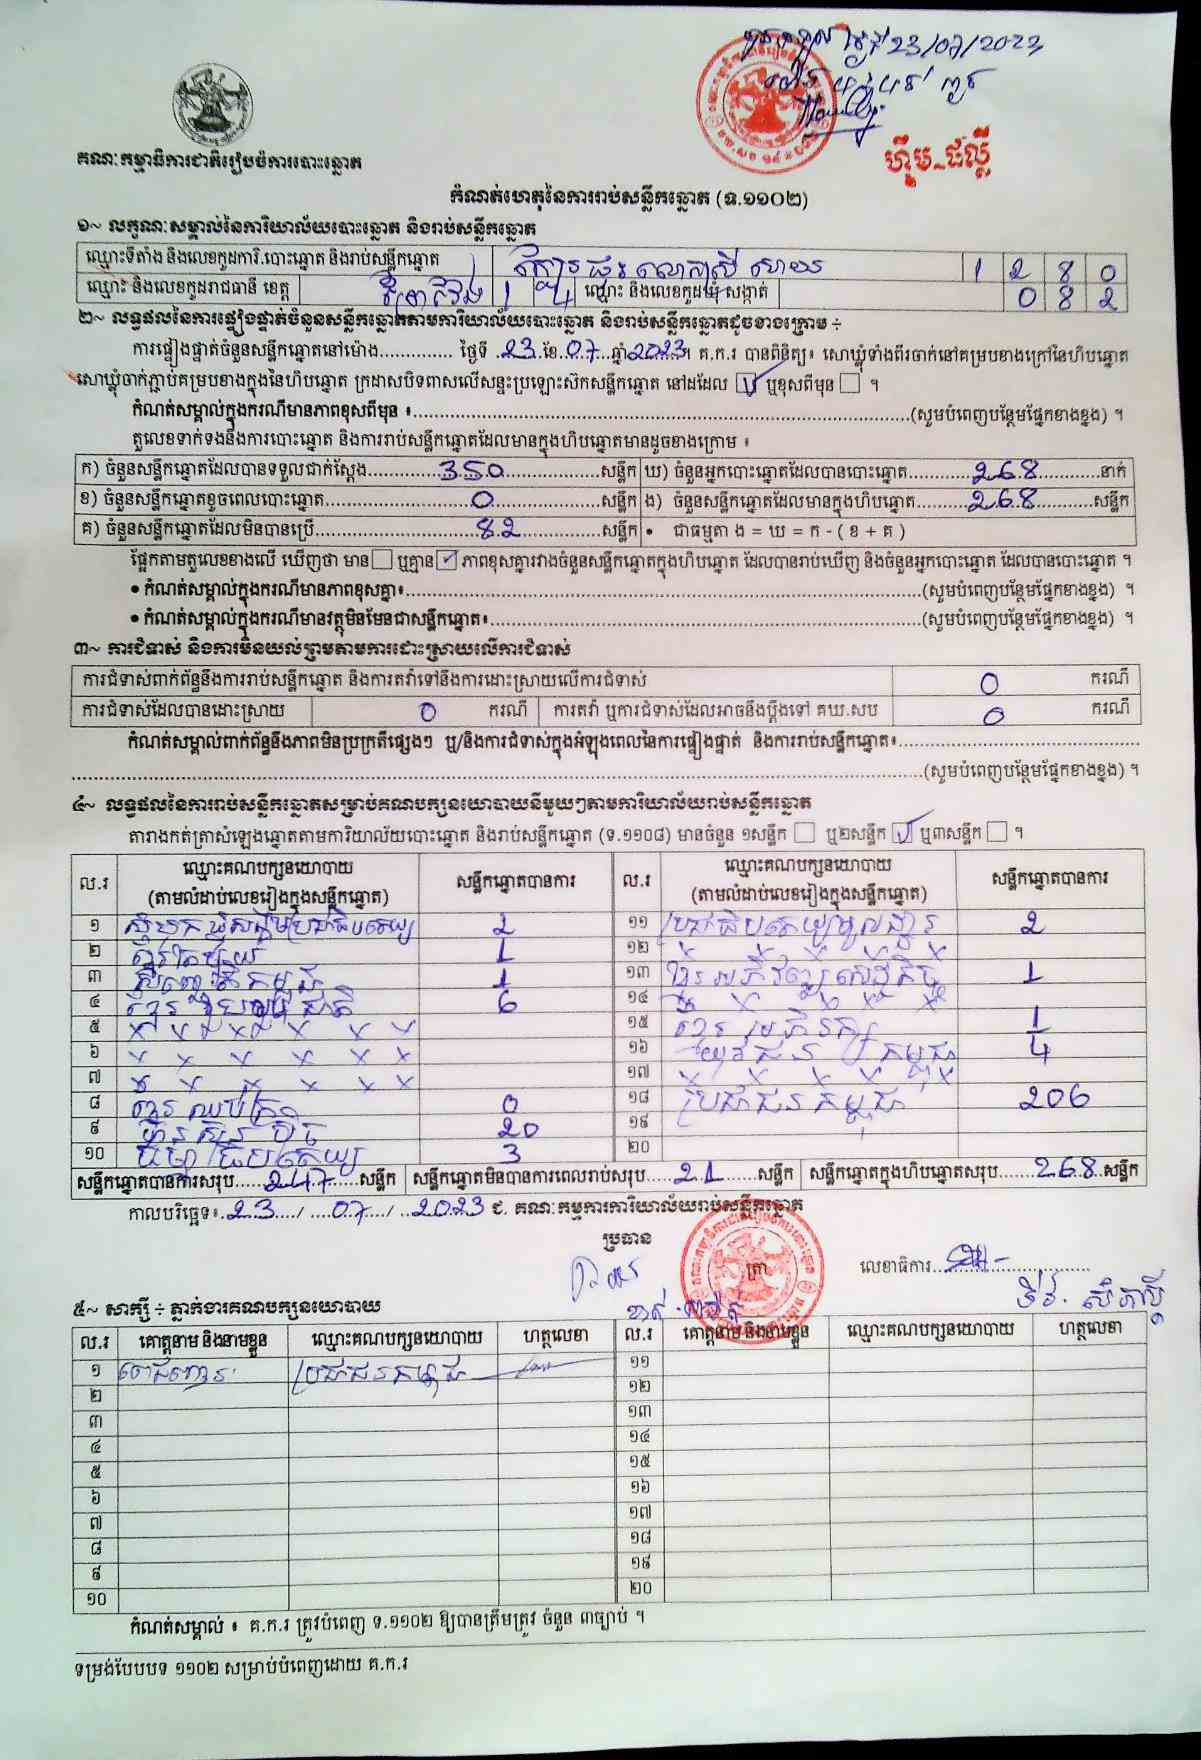 23/07/2023
គណៈកម្មាធិការជាតិរៀបចំការបោះឆ្នោត
ហ៊ឹម-ផល្លី
កំណត់ហេតុនៃការរាប់សន្លឹកឆ្នោត (ទ.១១០២)
១~ លក្ខណៈសម្គាល់នៃការិយាល័យបោះឆ្នោត និងរាប់សន្លឹកឆ្នោត
ឈ្មោះទីតាំង និងលេខកូដការិ.បោះឆ្នោត និងរាប់សន្លឹកឆ្នោត 1 2 8 0
ឈ្មោះ និងលេខកូដរាជធានី ខេត្ត ព្រៃវែង 1 4 ឈ្មោះ និងលេខកូដឃុំ សង្កាត់ 0 8 2
២~ លទ្ធផលនៃការផ្ទៀងផ្ទាត់ចំនួនសន្លឹកឆ្នោតតាមការិយាល័យបោះឆ្នោត និងរាប់សន្លឹកឆ្នោតដូចខាងក្រោម ÷
ការផ្ទៀងផ្ទាត់ចំនួនសន្លឹកឆ្នោតនៅម៉ោង.............. ថ្ងៃទី 23 ខែ 07 ឆ្នាំ 2023 ។ គ.ក.រ បានពិនិត្យ៖ សោឃ្លុំទាំងពីរចាក់នៅគម្របខាងក្រៅនៃហិបឆ្នោត
សោឃ្លុំចាក់ភ្ជាប់គម្របខាងក្នុងនៃហិបឆ្នោត ក្រដាសបិទពាសលើសន្ទះប្រឡោះស៊កសន្លឹកឆ្នោត នៅដដែល ☑ ឬខុសពីមុន ☐ ។
កំណត់សម្គាល់ក្នុងករណីមានភាពខុសពីមុន ៖..............(សូមបំពេញបន្ថែមផ្នែកខាងខ្នង) ។
តួលេខទាក់ទងនឹងការបោះឆ្នោត និងការរាប់សន្លឹកឆ្នោតដែលមានក្នុងហិបឆ្នោតមានដូចខាងក្រោម ៖
ក) ចំនួនសន្លឹកឆ្នោតដែលបានទទួលជាក់ស្តែង 350 សន្លឹក ឃ) ចំនួនអ្នកបោះឆ្នោតដែលបានបោះឆ្នោត 268 នាក់
ខ) ចំនួនសន្លឹកឆ្នោតខូចពេលបោះឆ្នោត 0 សន្លឹក ង) ចំនួនសន្លឹកឆ្នោតដែលមានក្នុងហិបឆ្នោត 268 សន្លឹក
គ) ចំនួនសន្លឹកឆ្នោតដែលមិនបានប្រើ 82 សន្លឹក • ជាធម្មតា ង = ឃ = ក - ( ខ + គ )
ផ្អែកតាមតួលេខខាងលើ ឃើញថា មាន ☐ ឬគ្មាន ☑ ភាពខុសគ្នារវាងចំនួនសន្លឹកឆ្នោតក្នុងហិបឆ្នោត ដែលបានរាប់ឃើញ និងចំនួនអ្នកបោះឆ្នោត ដែលបានបោះឆ្នោត ។
• កំណត់សម្គាល់ក្នុងករណីមានភាពខុសគ្នា៖..............(សូមបំពេញបន្ថែមផ្នែកខាងខ្នង) ។
• កំណត់សម្គាល់ក្នុងករណីមានវត្ថុមិនមែនជាសន្លឹកឆ្នោត៖..............(សូមបំពេញបន្ថែមផ្នែកខាងខ្នង) ។
៣~ ការជំទាស់ និងការមិនយល់ព្រមតាមការដោះស្រាយលើការជំទាស់
ការជំទាស់ពាក់ព័ន្ធនឹងការរាប់សន្លឹកឆ្នោត និងការតវ៉ាទៅនឹងការដោះស្រាយលើការជំទាស់ 0 ករណី
ការជំទាស់ដែលបានដោះស្រាយ 0 ករណី ការតវ៉ា ឬការជំទាស់ដែលអាចនឹងប្តឹងទៅ គឃ.សប 0 ករណី
កំណត់សម្គាល់ពាក់ព័ន្ធនឹងភាពមិនប្រក្រតីផ្សេងៗ ឬ/និងការជំទាស់ក្នុងអំឡុងពេលនៃការផ្ទៀងផ្ទាត់ និងការរាប់សន្លឹកឆ្នោត៖..............
..............(សូមបំពេញបន្ថែមផ្នែកខាងខ្នង) ។
៤~ លទ្ធផលនៃការរាប់សន្លឹកឆ្នោតសម្រាប់គណបក្សនយោបាយនីមួយៗតាមការិយាល័យរាប់សន្លឹកឆ្នោត
តារាងកត់ត្រាសំឡេងឆ្នោតតាមការិយាល័យបោះឆ្នោត និងរាប់សន្លឹកឆ្នោត (ទ.១១០៨) មានចំនួន ១សន្លឹក ☐ ឬ២សន្លឹក ☑ ឬ៣សន្លឹក ☐ ។
ល.រ ឈ្មោះគណបក្សនយោបាយ (តាមលំដាប់លេខរៀងក្នុងសន្លឹកឆ្នោត) សន្លឹកឆ្នោតបានការ ល.រ ឈ្មោះគណបក្សនយោបាយ (តាមលំដាប់លេខរៀងក្នុងសន្លឹកឆ្នោត) សន្លឹកឆ្នោតបានការ
១ 2 ១១ ប្រជាធិបតេយ្យមូលដ្ឋាន 2
២ 1 ១២ x x x x x x
៣ 1 ១៣ 1
៤ 6 ១៤ x x x x
៥ x x x x x x x ១៥ 1
៦ x x x x x x ១៦ យុវជន កម្ពុជា 4
៧ x x x x x x ១៧ x x x x x x
៨ 0 ១៨ ប្រជាជនកម្ពុជា 206
៩ ហ្វ៊ុនស៊ិនប៉ិច 20 ១៩
១០ ធម្មាធិបតេយ្យ 3 ២០
សន្លឹកឆ្នោតបានការសរុប 247 សន្លឹក សន្លឹកឆ្នោតមិនបានការពេលរាប់សរុប 21 សន្លឹក សន្លឹកឆ្នោតក្នុងហិបឆ្នោតសរុប 268 សន្លឹក
កាលបរិច្ឆេទ៖ 23 / 07 / 2023 ជ. គណៈកម្មការការិយាល័យរាប់សន្លឹកឆ្នោត
ប្រធាន
ត្រា
លេខាធិការ
៥~ សាក្សី ÷ ភ្នាក់ងារគណបក្សនយោបាយ
ល.រ គោត្តនាម និងនាមខ្លួន ឈ្មោះគណបក្សនយោបាយ ហត្ថលេខា ល.រ គោត្តនាម និងនាមខ្លួន ឈ្មោះគណបក្សនយោបាយ ហត្ថលេខា
១ ប្រជាជនកម្ពុជា ១១
២ ១២
៣ ១៣
៤ ១៤
៥ ១៥
៦ ១៦
៧ ១៧
៨ ១៨
៩ ១៩
១០ ២០
កំណត់សម្គាល់ ៖ គ.ក.រ ត្រូវបំពេញ ទ.១១០២ ឱ្យបានត្រឹមត្រូវ ចំនួន ៣ច្បាប់ ។
ទម្រង់បែបបទ ១១០២ សម្រាប់បំពេញដោយ គ.ក.រ